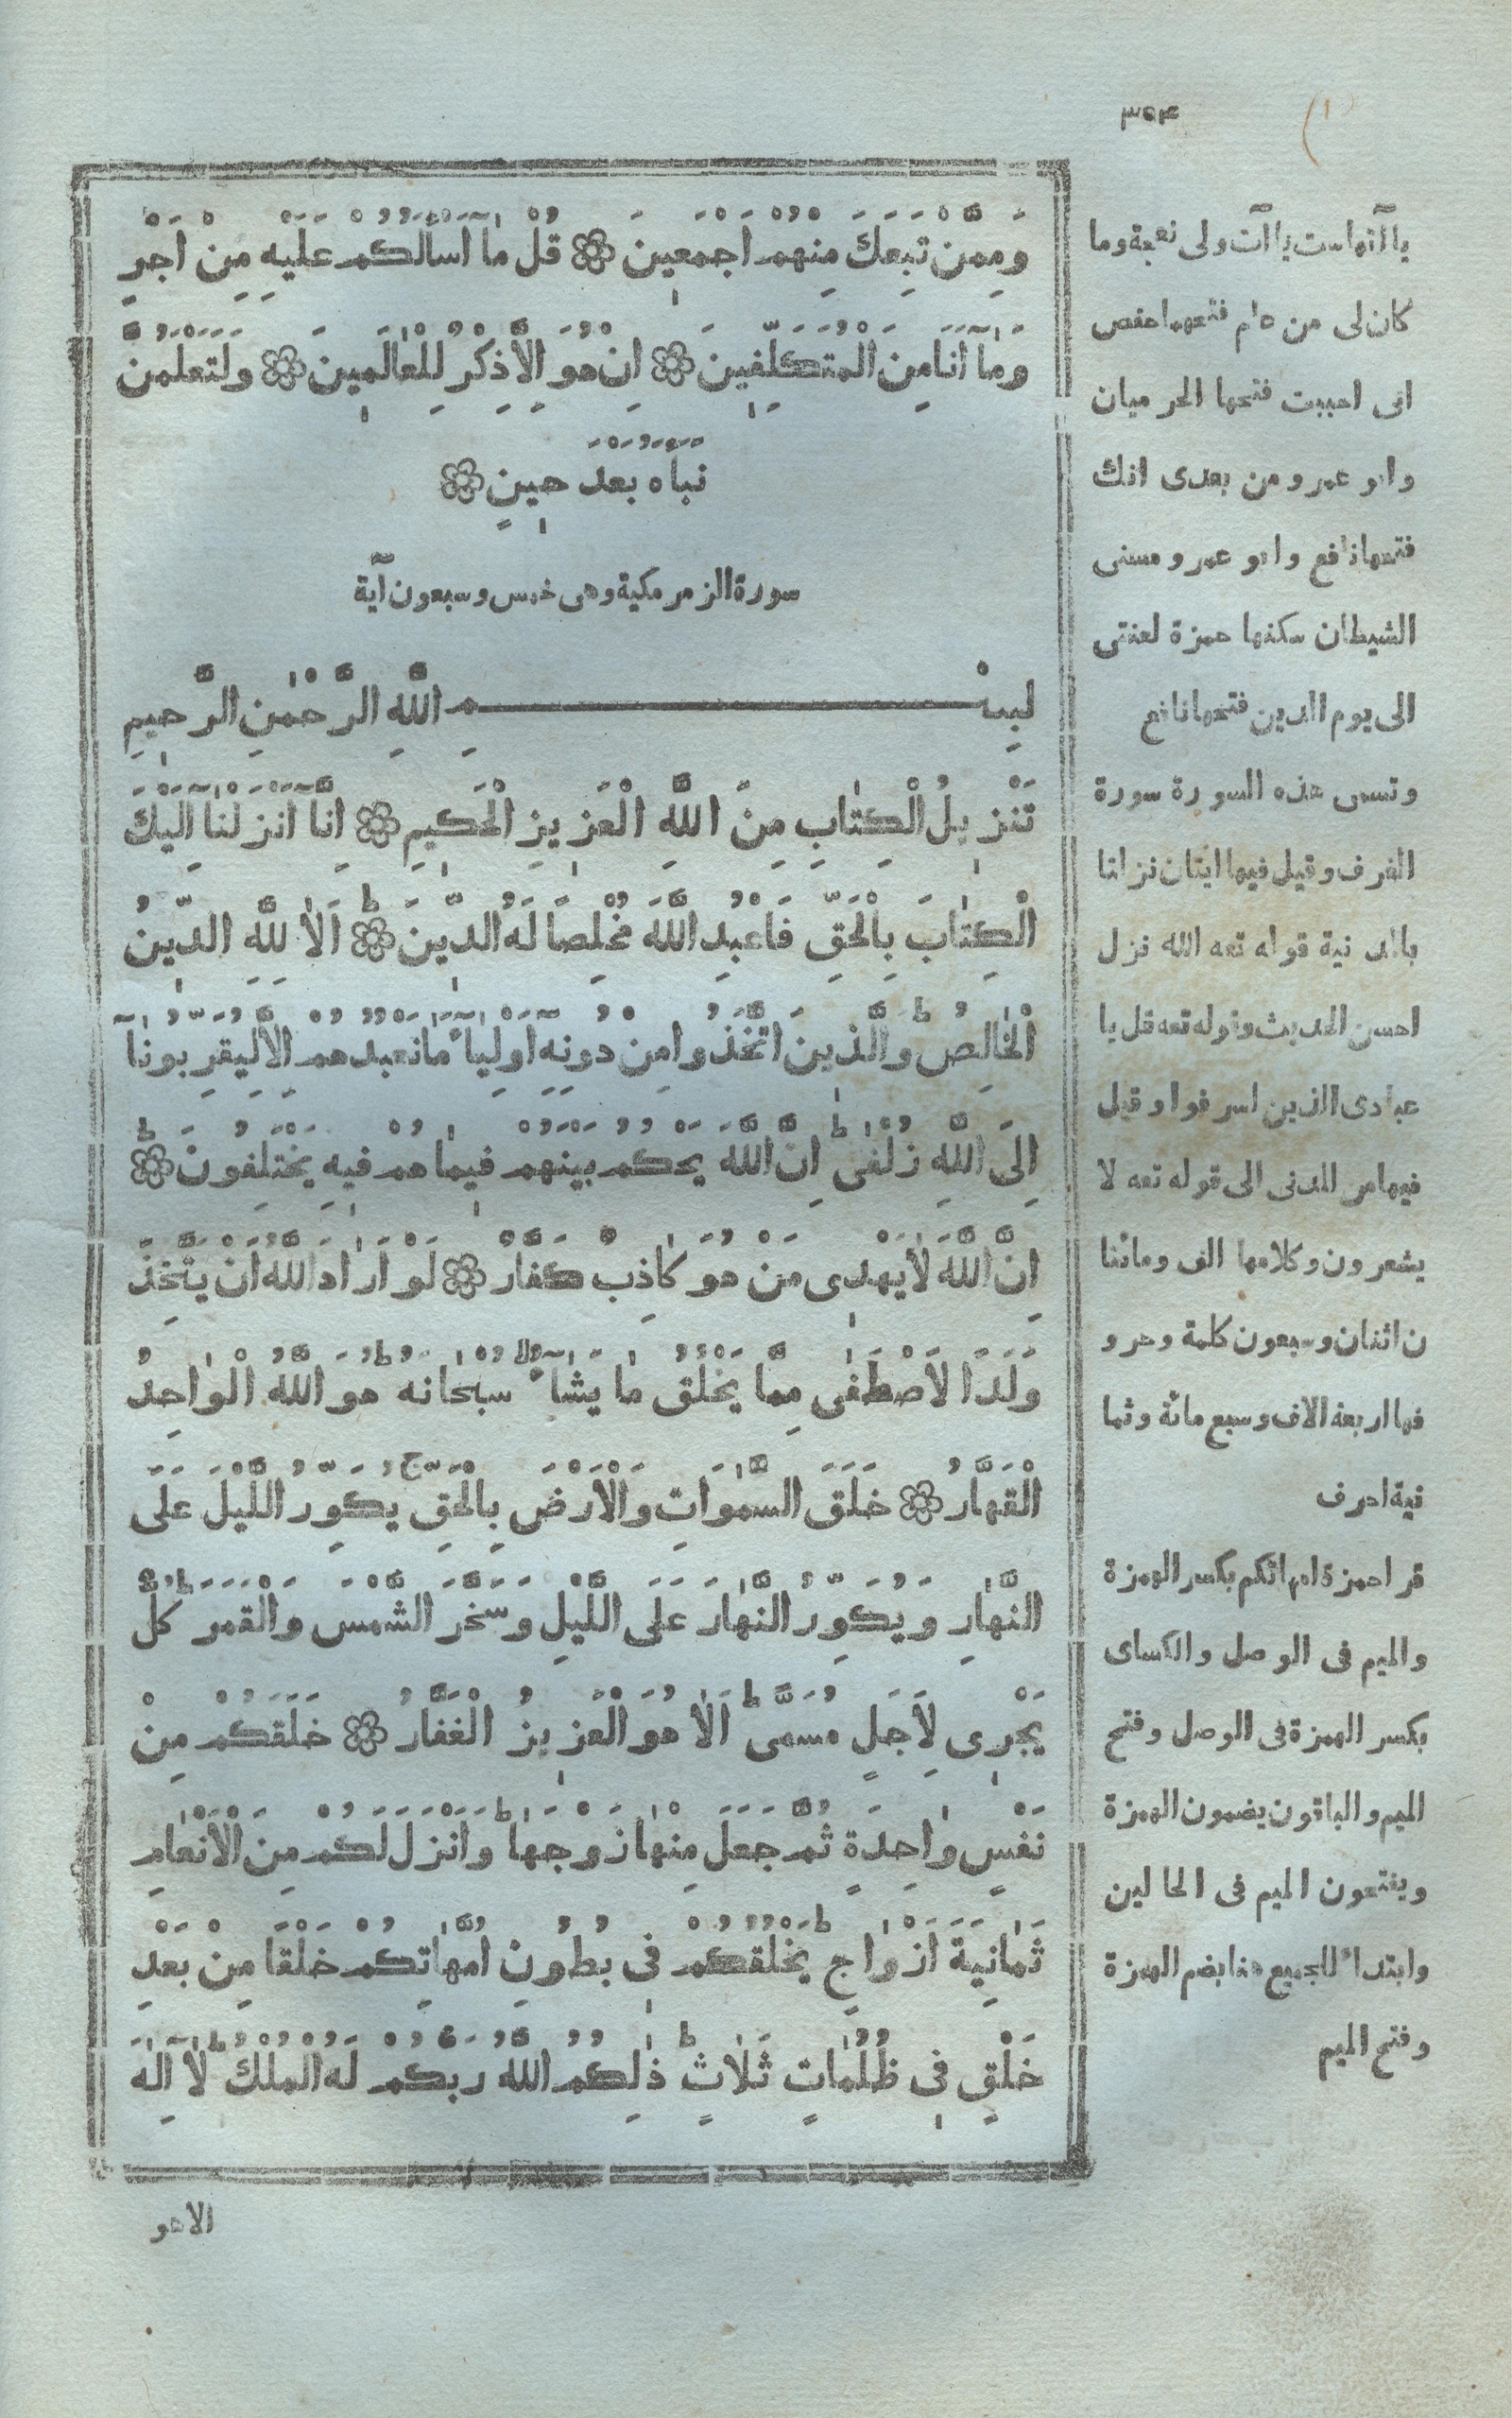 ٣٥٤
(١)
وَمِمَّنْ تَبِعَكَ مِنْهُمْ اَجْمَعِينَ ۞ قُلْ مٰٓا اَسْاَلُكُمْ عَلَيْهِ مِنْ اَجْرٍ
وَمٰٓا اَنَا مِنَ الْمُتَكَلِّفِينَ ۞ اِنْ هُوَ اِلَّا ذِكْرٌ لِلْعٰالَمِينَ ۞ وَلَتَعْلَمُنَّ
نَبَاَهُ بَعْدَ حِينٍ ۞
سورة الزمر مكية وهى خمس وسبعون آية
بِسْمِ اللَّهِ الرَّحْمٰنِ الرَّحِيمِ
تَنْزِيلُ الْكِتٰابِ مِنَ اللَّهِ الْعَزِيزِ الْحَكِيمِ ۞ اِنَّٓا اَنْزَلْنٰٓا اِلَيْكَ
الْكِتٰابَ بِالْحَقِّ فَاعْبُدِ اللَّهَ مُخْلِصًا لَهُ الدِّينَ ط ۞ اَلٰا لِلَّهِ الدِّينُ
الْخٰالِصُ ط وَالَّذِينَ اتَّخَذُوا مِنْ دُونِهِٓ اَوْلِيٰٓاءَ مٰا نَعْبُدُهُمْ اِلَّا لِيُقَرِّبُونٰٓا
اِلَى اللَّهِ زُلْفٰى ط اِنَّ اللَّهَ يَحْكُمُ بَيْنَهُمْ فِيمٰا هُمْ فِيهِ يَخْتَلِفُونَ ط ۞
اِنَّ اللَّهَ لٰا يَهْدِى مَنْ هُوَ كٰاذِبٌ كَفَّارٌ ۞ لَوْ اَرٰادَ اللَّهُ اَنْ يَتَّخِذَ
وَلَدًا لَاصْطَفٰى مِمَّا يَخْلُقُ مٰا يَشٰٓاءُ لا سُبْحٰانَهُ ط هُوَ اللَّهُ الْوٰاحِدُ
الْقَهَّارُ ۞ خَلَقَ السَّمٰوَاتِ وَالْاَرْضَ بِالْحَقِّ ج يُكَوِّرُ اللَّيْلَ عَلَى
النَّهٰارِ وَيُكَوِّرُ النَّهٰارَ عَلَى اللَّيْلِ وَسَخَّرَ الشَّمْسَ وَالْقَمَرَ ط كُلٌّ
يَجْرِى لِاَجَلٍ مُسَمًّى ط اَلٰا هُوَ الْعَزِيزُ الْغَفَّارُ ۞ خَلَقَكُمْ مِنْ
نَفْسٍ وٰاحِدَةٍ ثُمَّ جَعَلَ مِنْهٰا زَوْجَهٰا ط وَاَنْزَلَ لَكُمْ مِنَ الْاَنْعٰامِ
ثَمٰانِيَةَ اَزْوٰاجٍ ط يَخْلُقُكُمْ فِى بُطُونِ اُمَّهٰاتِكُمْ خَلْقًا مِنْ بَعْدِ
خَلْقٍ فِى ظُلُمٰاتٍ ثَلٰاثٍ ط ذٰلِكُمُ اللَّهُ رَبُّكُمْ لَهُ الْمُلْكُ ط لٰٓا اِلٰهَ
الا هو
ياآتها ست ياآت ولى نعجة وما
كان لى من فتحهما حفص
انى احببت فتحها الحرميان
وابو عمرو من بعدى انك
فتحها نافع وابو عمرو مسنى
الشيطان سكنها حمزة لعنتى
الى يوم الدين فتحها نافع
وتسمى هذه السورة سورة
الغرف وقيل فيها ايتان نزلتا
بالمدنية قوله تعه الله نزل
احسن الحديث وقوله تعه قل يا
عبادى الذين اسرفوا وقيل
فيها من المدنى الى قوله تعه لا
يشعرون وكلامها الف ومائتا
ن اثنان وسبعون كلمة وحرو
فها اربعة الاف وسبع مائة وثما
نية احرف
قرا حمزة امهاتكم بكسر الهمزة
والميم فى الوصل والكساى
بكسر الهمزة فى الوصل وفتح
الميم والباقون يضمون الهمزة
ويفتحون الميم فى الحالين
وابتداء للجميع هنا بضم الهمزة
وفتح الميم